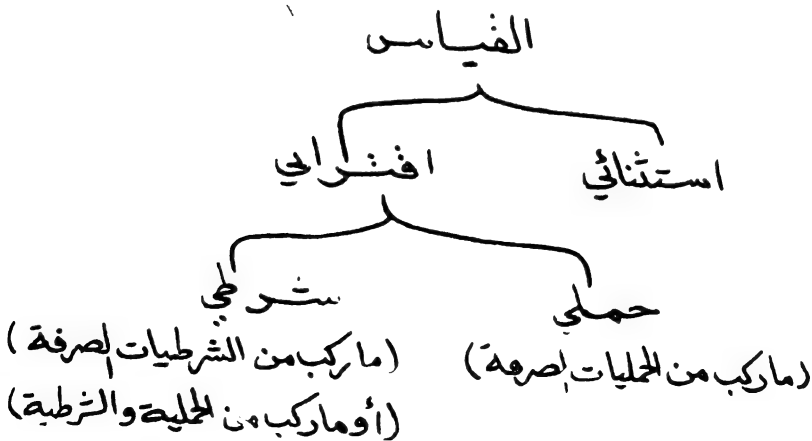 القياس
استثنائي
اقتراني
حملي
(ماركب من الحمليات الصرفة)
شرطي
(ماركب من الشرطيات الصرفة)
(أو ماركب من الحملية والشرطية)